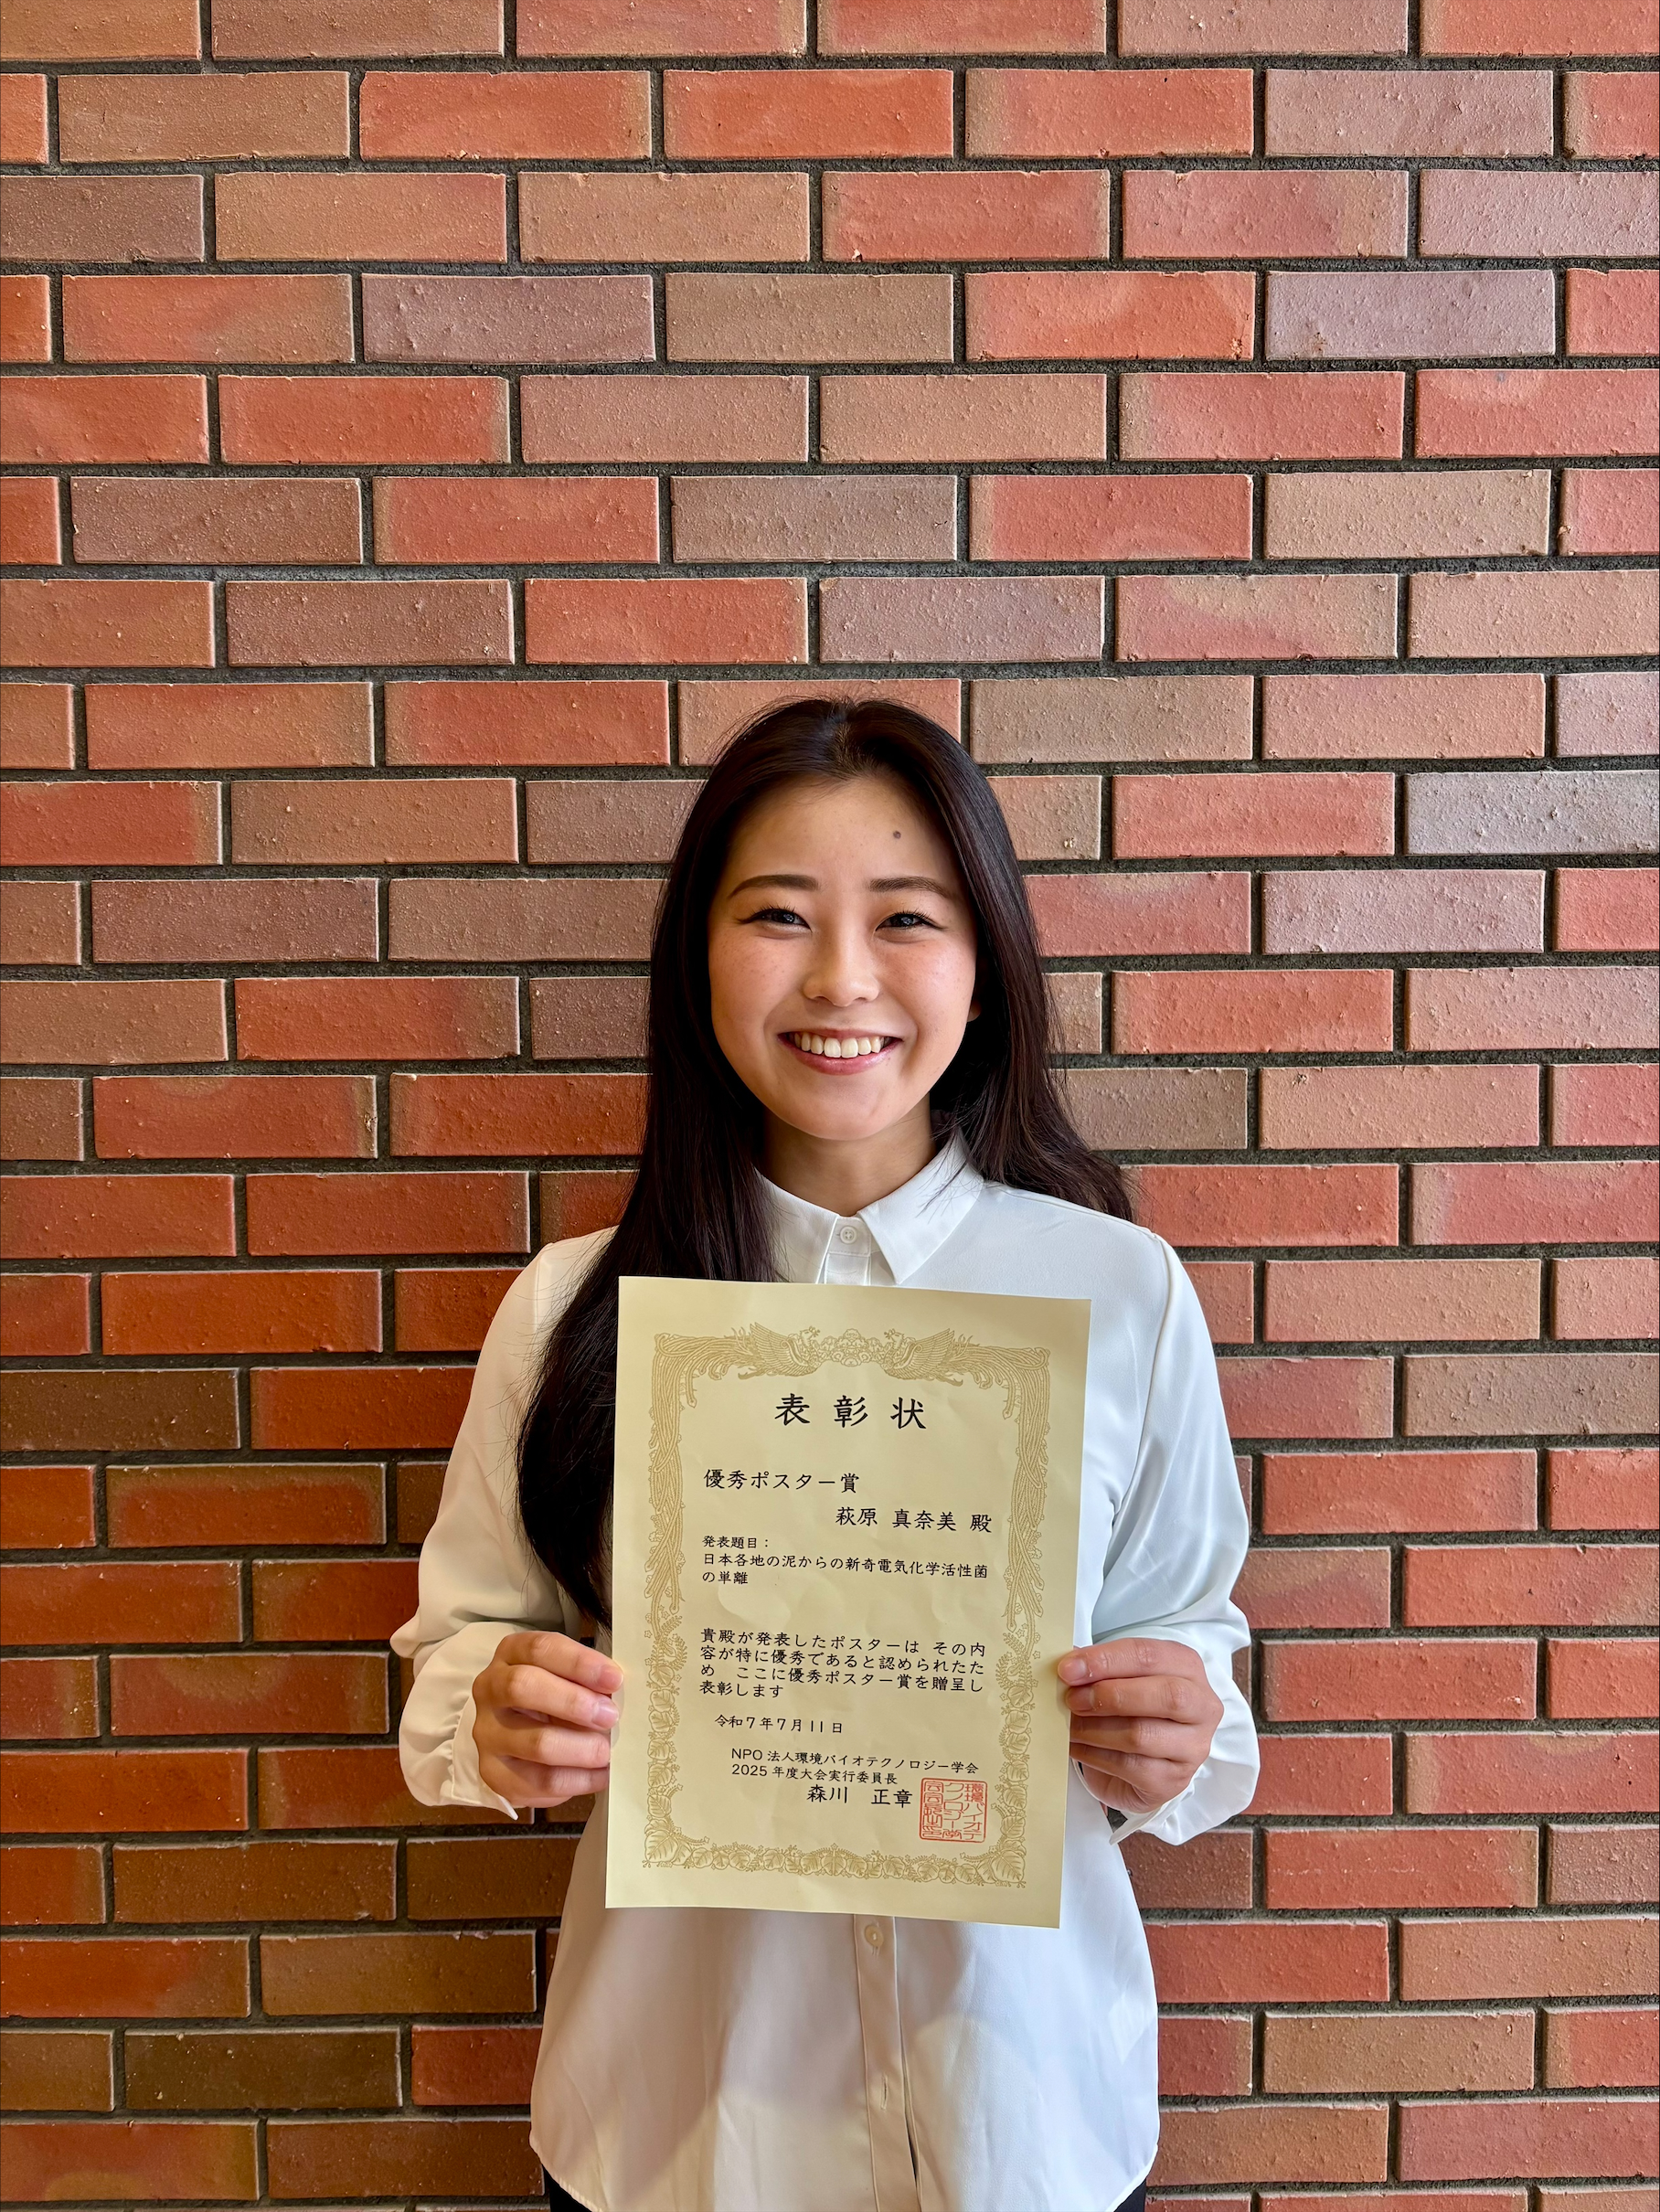 表彰状
優秀ポスター賞
萩原 真奈美 殿
発表題目：
日本各地の泥からの新奇電気化学活性菌
の単離
貴殿が発表したポスターは その内
容が特に優秀であると認められたた
め ここに優秀ポスター賞を贈呈し
表彰します
令和7年7月11日
NPO 法人環境バイオテクノロジー学会
2025 年度大会実行委員長
森川 正章